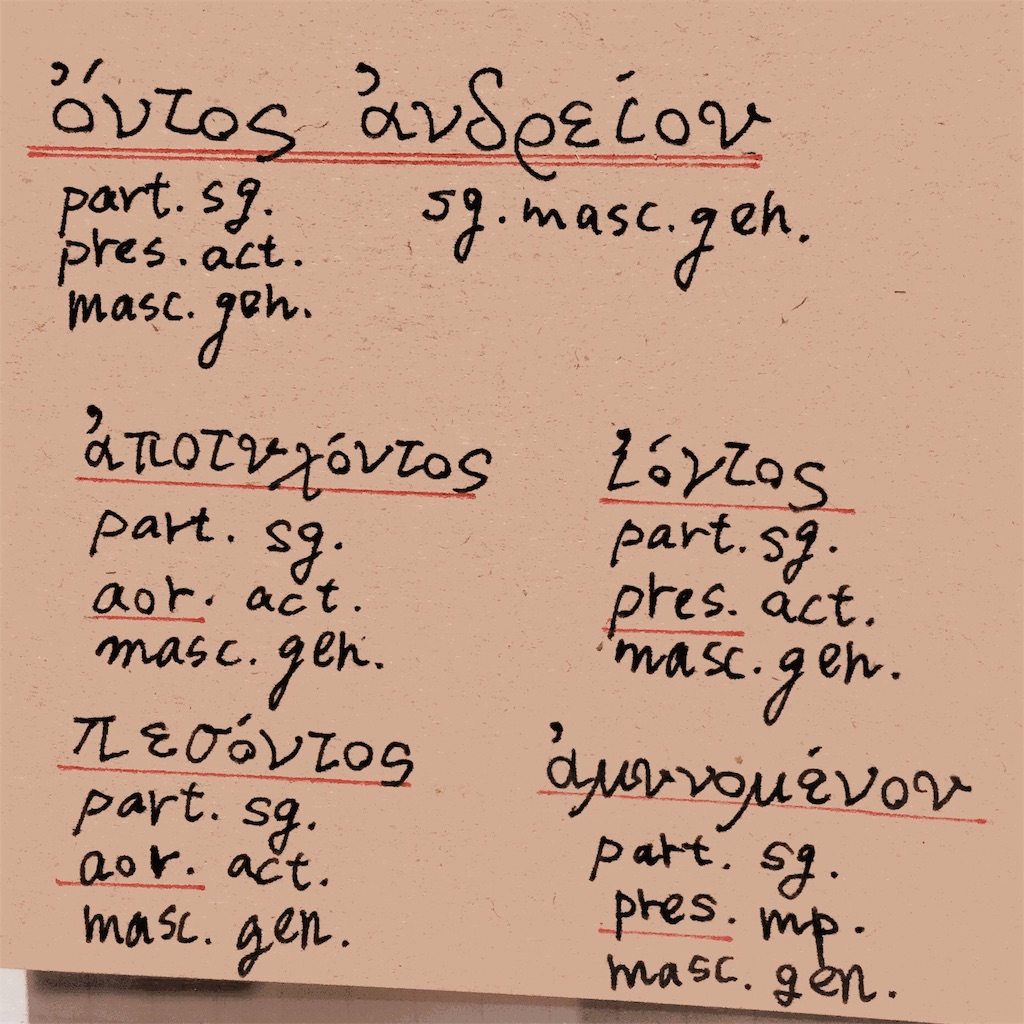 ὄντος ἀνδρείου
part. sg.
pres. act.
masc. gen.
sg. masc. gen.
ἀποτυχόντος
part. sg.
aor. act.
masc. gen.
ἰόντος
part. sg.
pres. act.
masc. gen.
πεσόντος
part. sg.
aor. act.
masc. gen.
ἀμυνομένου
part. sg.
pres. mp.
masc. gen.